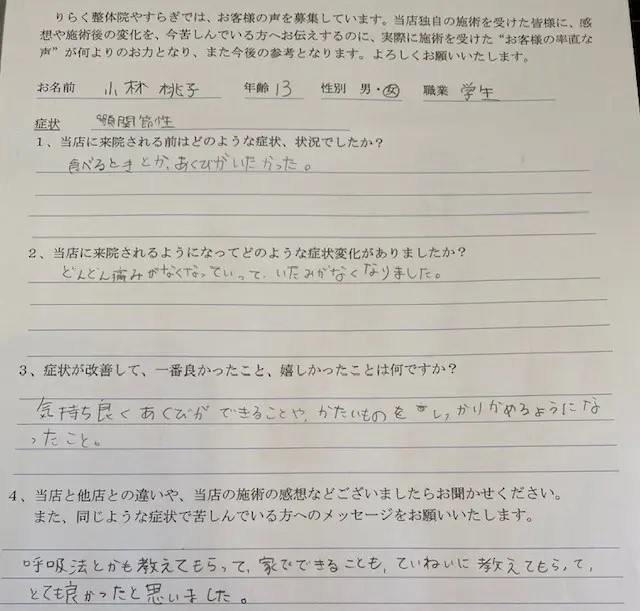 りらく整体院やすらぎでは、お客様の声を募集しています。当店独自の施術を受けた皆様に、感
想や施術後の変化を、今苦しんでいる方へお伝えするのに、実際に施術を受けた“お客様の率直な
声”が何よりのお力となり、また今後の参考となります。よろしくお願いいたします。
お名前 小林 桃子 年齢 13 性別 男・女 職業 学生
症状 顎関節性
1、当店に来院される前はどのような症状、状況でしたか?
食べるときとか、あくびがいたかった。
2、当店に来院されるようになってどのような症状変化がありましたか?
どんどん痛みがなくなっていって、いたみがなくなりました。
3、症状が改善して、一番良かったこと、嬉しかったことは何ですか?
気持ち良くあくびができることや、かたいものをしっかりかめるようにな
ったこと。
4、当店と他店との違いや、当店の施術の感想などございましたらお聞かせください。
また、同じような症状で苦しんでいる方へのメッセージをお願いいたします。
呼吸法とかも教えてもらって、家でできることも、ていねいに教えてもらって、
とても良かったと思いました。